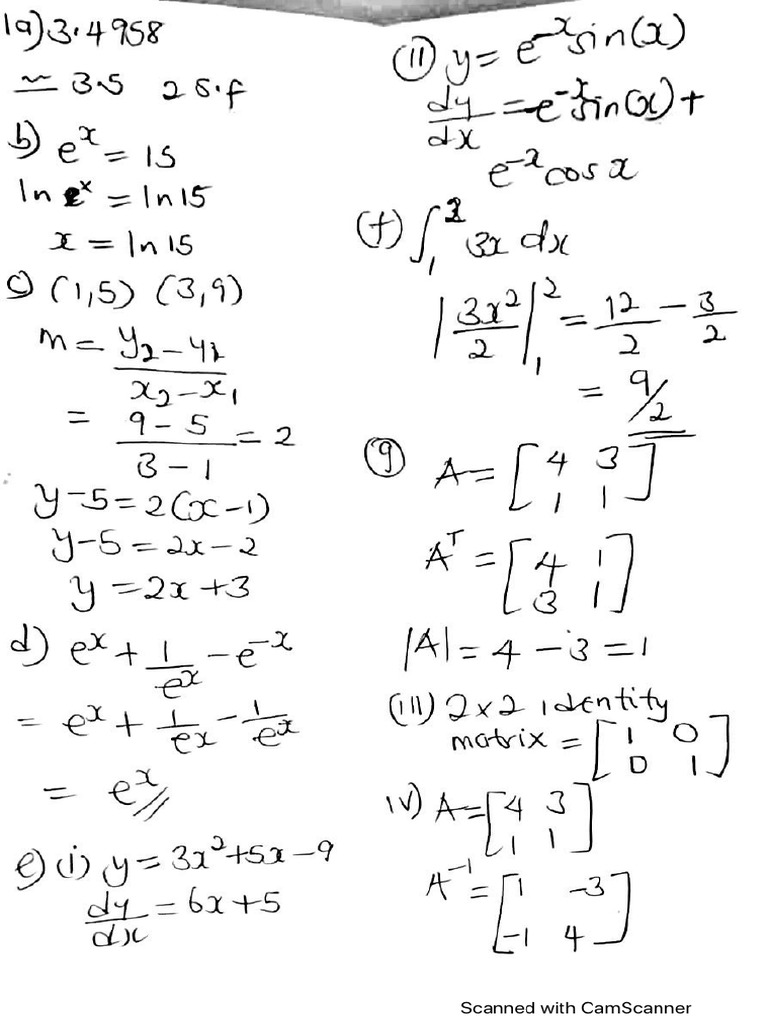 1a) 3.4958
≃ 3.5 2 s.f
b) e^x = 15
ln e^x = ln 15
x = ln 15
c) (1,5) (3,9)
m = y2 - y1
x2 - x1
= 9 - 5 = 2
3 - 1
y - 5 = 2(x - 1)
y - 5 = 2x - 2
y = 2x + 3
d) e^x + 1/e^x - e^-x
= e^x + 1/e^x - 1/e^x
= e^x //
e) (i) y = 3x^2 + 5x - 9
dy/dx = 6x + 5
(ii) y = e^-x sin(x)
dy/dx = -e^-x sin(x) +
e^-x cos x
(f) ∫_1^2 3x dx
| 3x^2/2 |_1^2 = 12/2 - 3/2
= 9/2
(g) A = [4 3
1 1]
A^T = [4 1
3 1]
|A| = 4 - 3 = 1
(iii) 2 x 2 identity
matrix = [1 0
0 1]
iv) A = [4 3
1 1]
A^-1 = [1 -3
-1 4]
Scanned with CamScanner